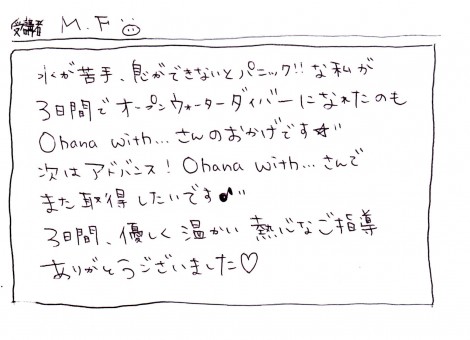 受講者 M.F
水が苦手、息ができないとパニック!!な私が
3日間でオープンウォーターダイバーになれたのも
Ohana with...さんのおかげです☆
次はアドバンス！Ohana with...さんで
また取得したいです♪
3日間、優しく温かい熱心なご指導
ありがとうございました♡